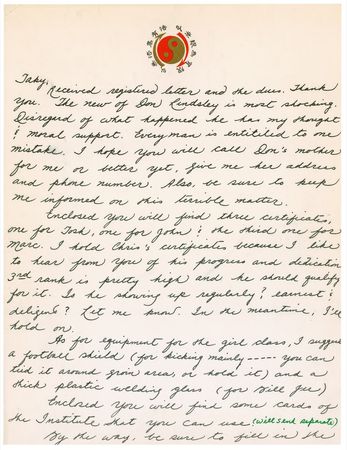 Taky,
Received registered letter and the dues. Thank
you. The new of Don Lindsley is most shocking.
Disregard of what happened he has my thought
& moral support. Every man is entitiled to one
mistake. I hope you will call Don's mother
for me or better yet, give me her address
and phone number. Also, be sure to keep
me informed on this terrible matter.
Enclosed you will find three certificates,
one for Tosh, one for John & the third one for
Marc. I hold Chris's certificates because I like
to hear from you of his progress and dedication
3rd rank is pretty high and he should qualify
for it. Is he showing up regularly? earnest &
deligent? Let me know. In the meantime, I'll
hold on.
As for equipment for the girl class, I suggest
a football shield (for kicking mainly ----- you can
tied it around groin area, or hold it) and a
thick plastic welding glass (for Jill Gee)
Enclosed you will find some cards of
the Institute that you can use (will send separate)
By the way, be sure to fill in the